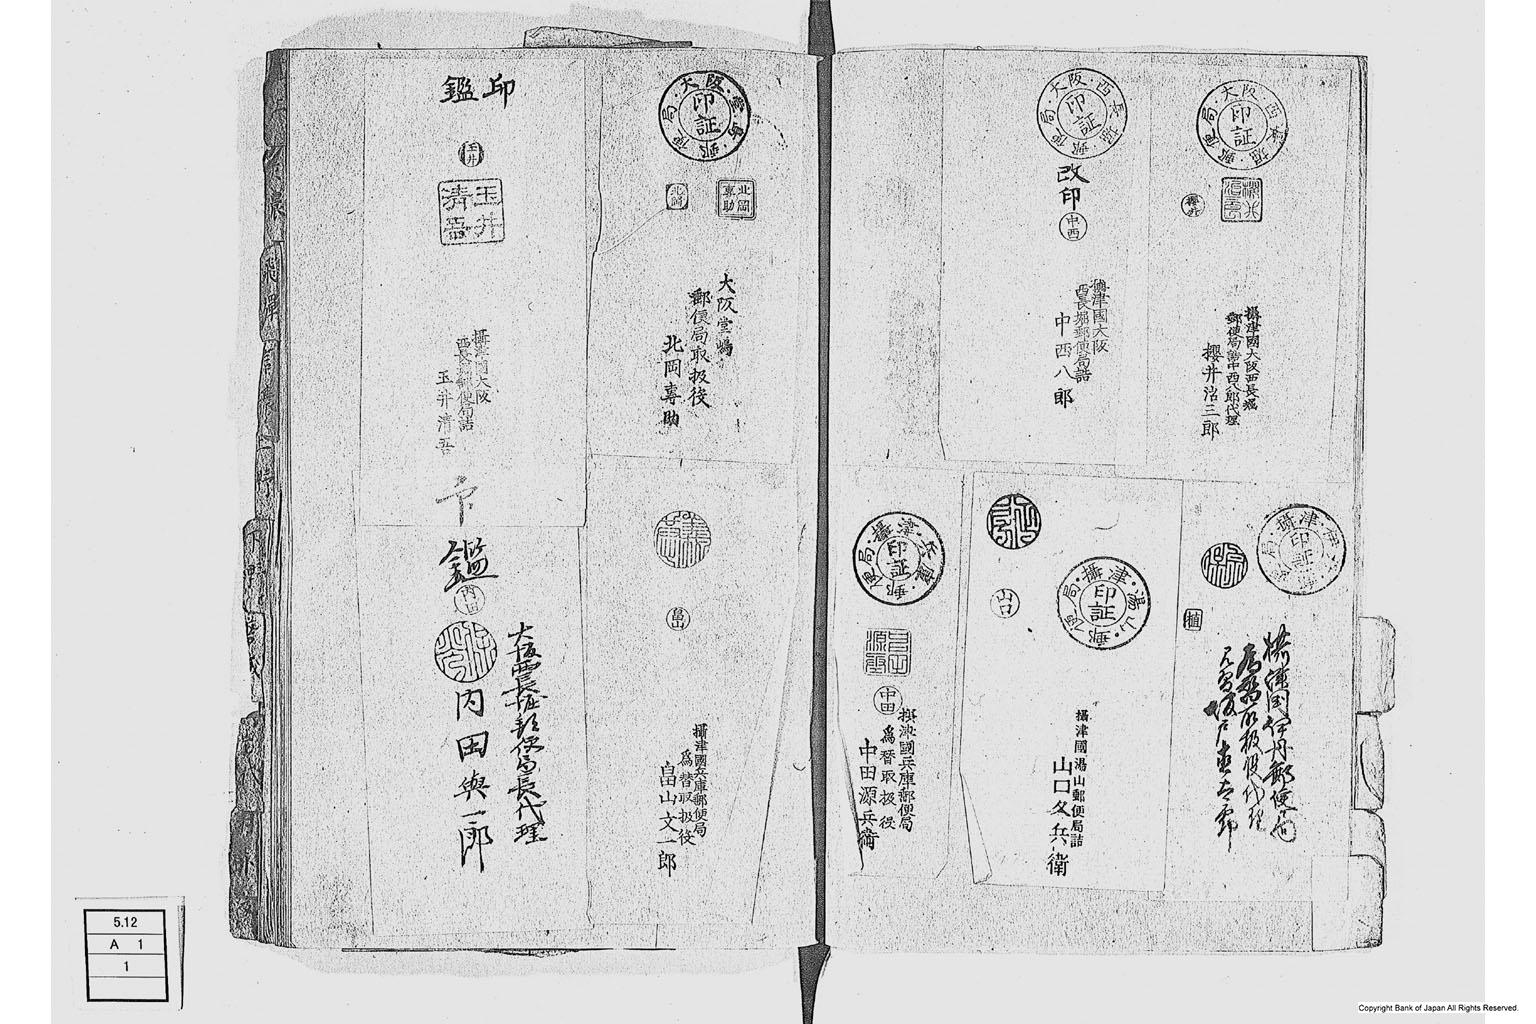 大阪・西長堀・郵便局・
印証
櫻井
攝津國大阪西長堀
郵便局詰中西八郎代理
櫻井治三郎
大阪・西長堀・郵便局・
印証
改印
中西
攝津國大阪
西長堀郵便局詰
中西八郎
攝津・伊丹・郵便局・
印証
植
攝津國伊丹郵便局
為替取扱役代理
攝津・湯山・郵便局・
印証
山口
攝津國湯山郵便局詰
山口久兵衛
攝津・兵庫・郵便局・
印証
中田
攝津國兵庫郵便局
為替取扱役
中田源兵衛
大阪・堂島・郵便局・
印証
北岡
專助
北岡
大阪堂嶋
郵便局取扱役
北岡專助
印鑑
玉井
玉井
清吾
攝津國大阪
西長堀郵便局詰
玉井清吾
畠山
攝津國兵庫郵便局
為替取扱役
畠山文一郎
印鑑
内田
大阪西長堀郵便局長代理
内田與一郎
5.12
A 1
1
Copyright Bank of Japan All Rights Reserved.